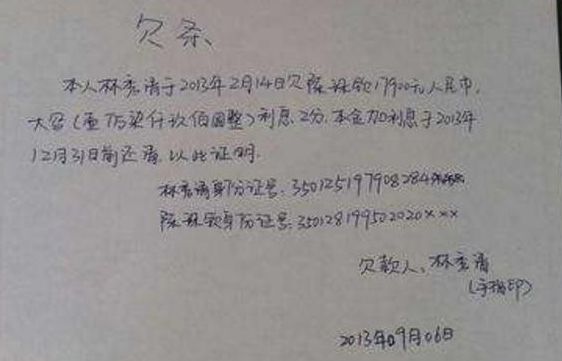 欠条
本人林秀清于2013年2月14日欠陈 钦17900元人民币,
大写(壹万柒仟玖佰圆整)利息2分.本金加利息于2013年
12月31日前还清.以此证明.
林秀清身份证号:350125197908284
陈 钦身份证号:350128199502020×××
欠款人、林秀清
(手指印)
2013年09月06日